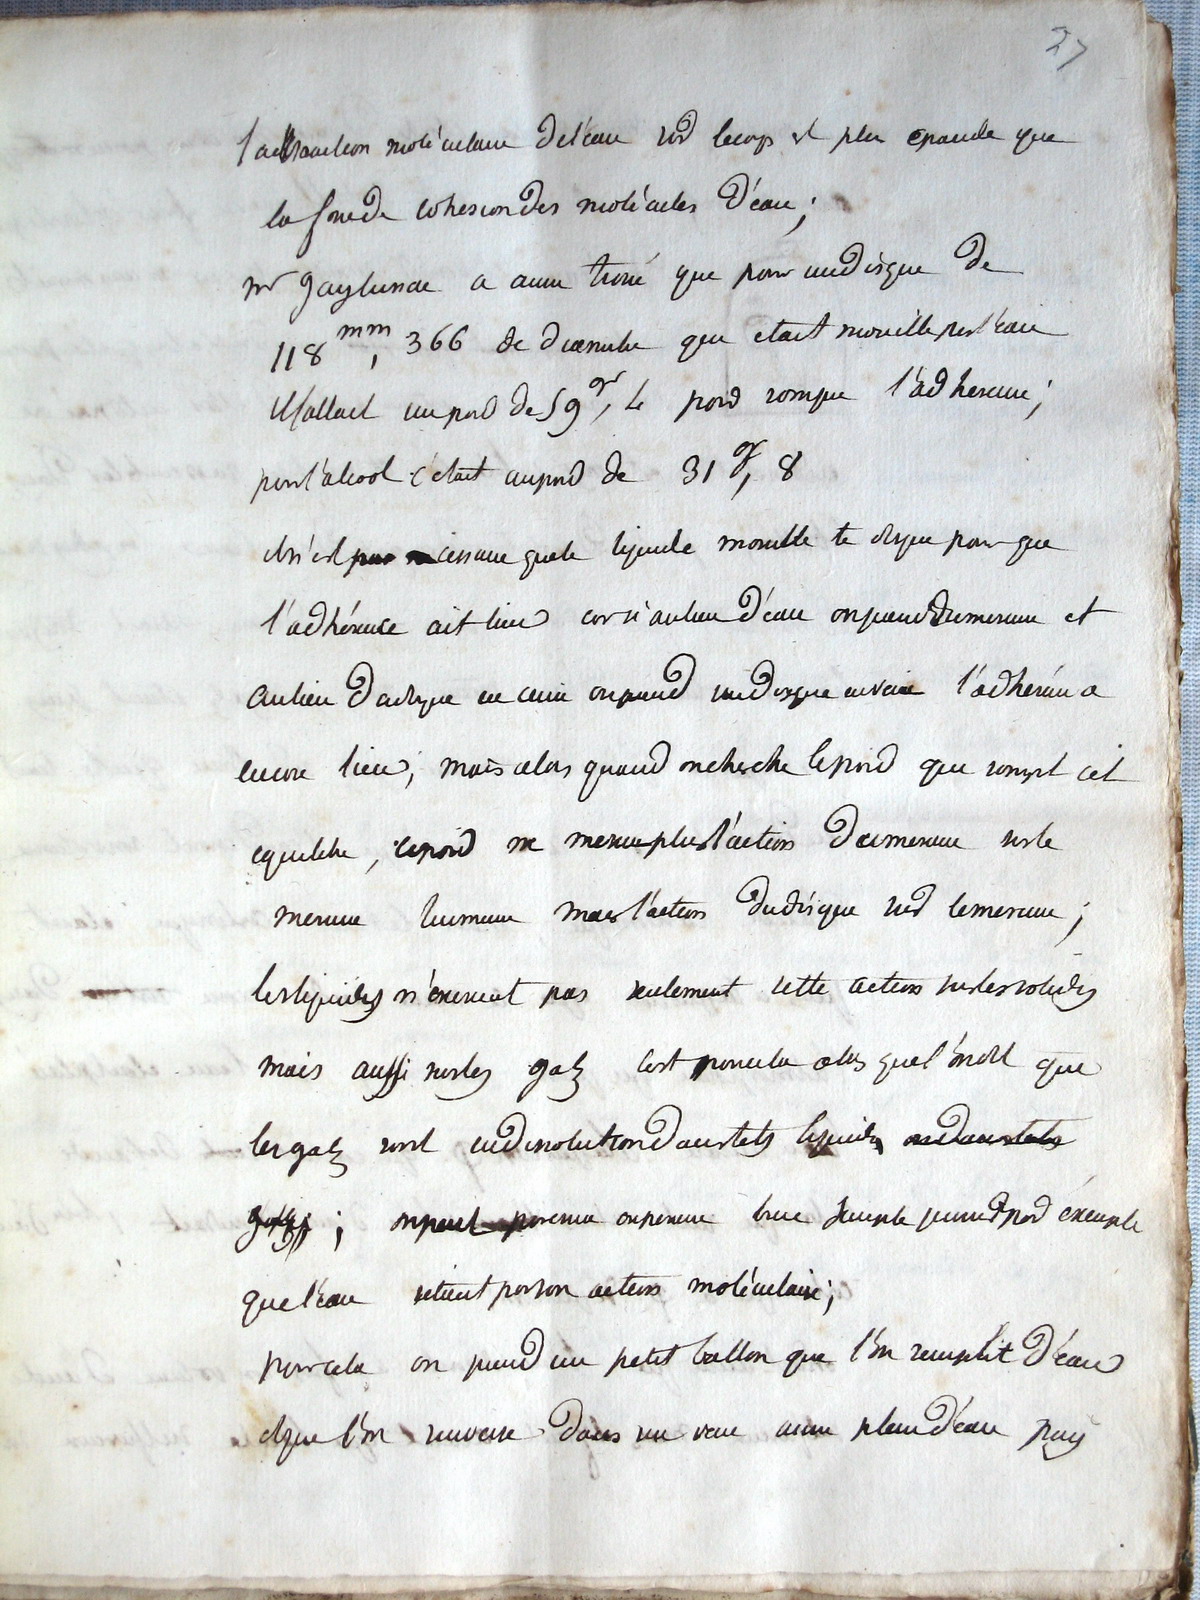 27
l'attraction moléculaire de l'eau sur le corps est plus grande que
la force de cohesion des molécules d'eau;
mr gaylussac a aussi trouvé que pour un disque de
118mm, 366 de diametre qui etait mouillé par l'eau
il fallait un poid de 59gr, 4 pour rompre l'adherence;
pour l'alcool c'etait un poid de 31gr, 8
il n'est pas necessaire que le liquide mouille le disque pour que
l'adhérence ait lieu car si au lieu d'eau on prend du mercure et
au lieu d'un disque en on prend un disque en verre l'adhérence a
encore lieu; mais alors quand on cherche le poid qui rompt cet
equilibre, ce poid ne mesure plus l'action du mercure sur le
mercure mais l'action du disque sur le mercure;
les liquides n'exercent pas seulement cette action sur les solides
mais aussi sur les gaz c'est pour cela alors que l'on dit que
les gaz sont en dissolution dans tels liquides ou dans tels
gaz; on peut par une experience bien simple par exemple
que l'eau retient par son action moléculaire;
pour cela on prend un petit ballon que l'on remplit d'eau
et que l'on renverse dans un vase aussi plein d'eau puis